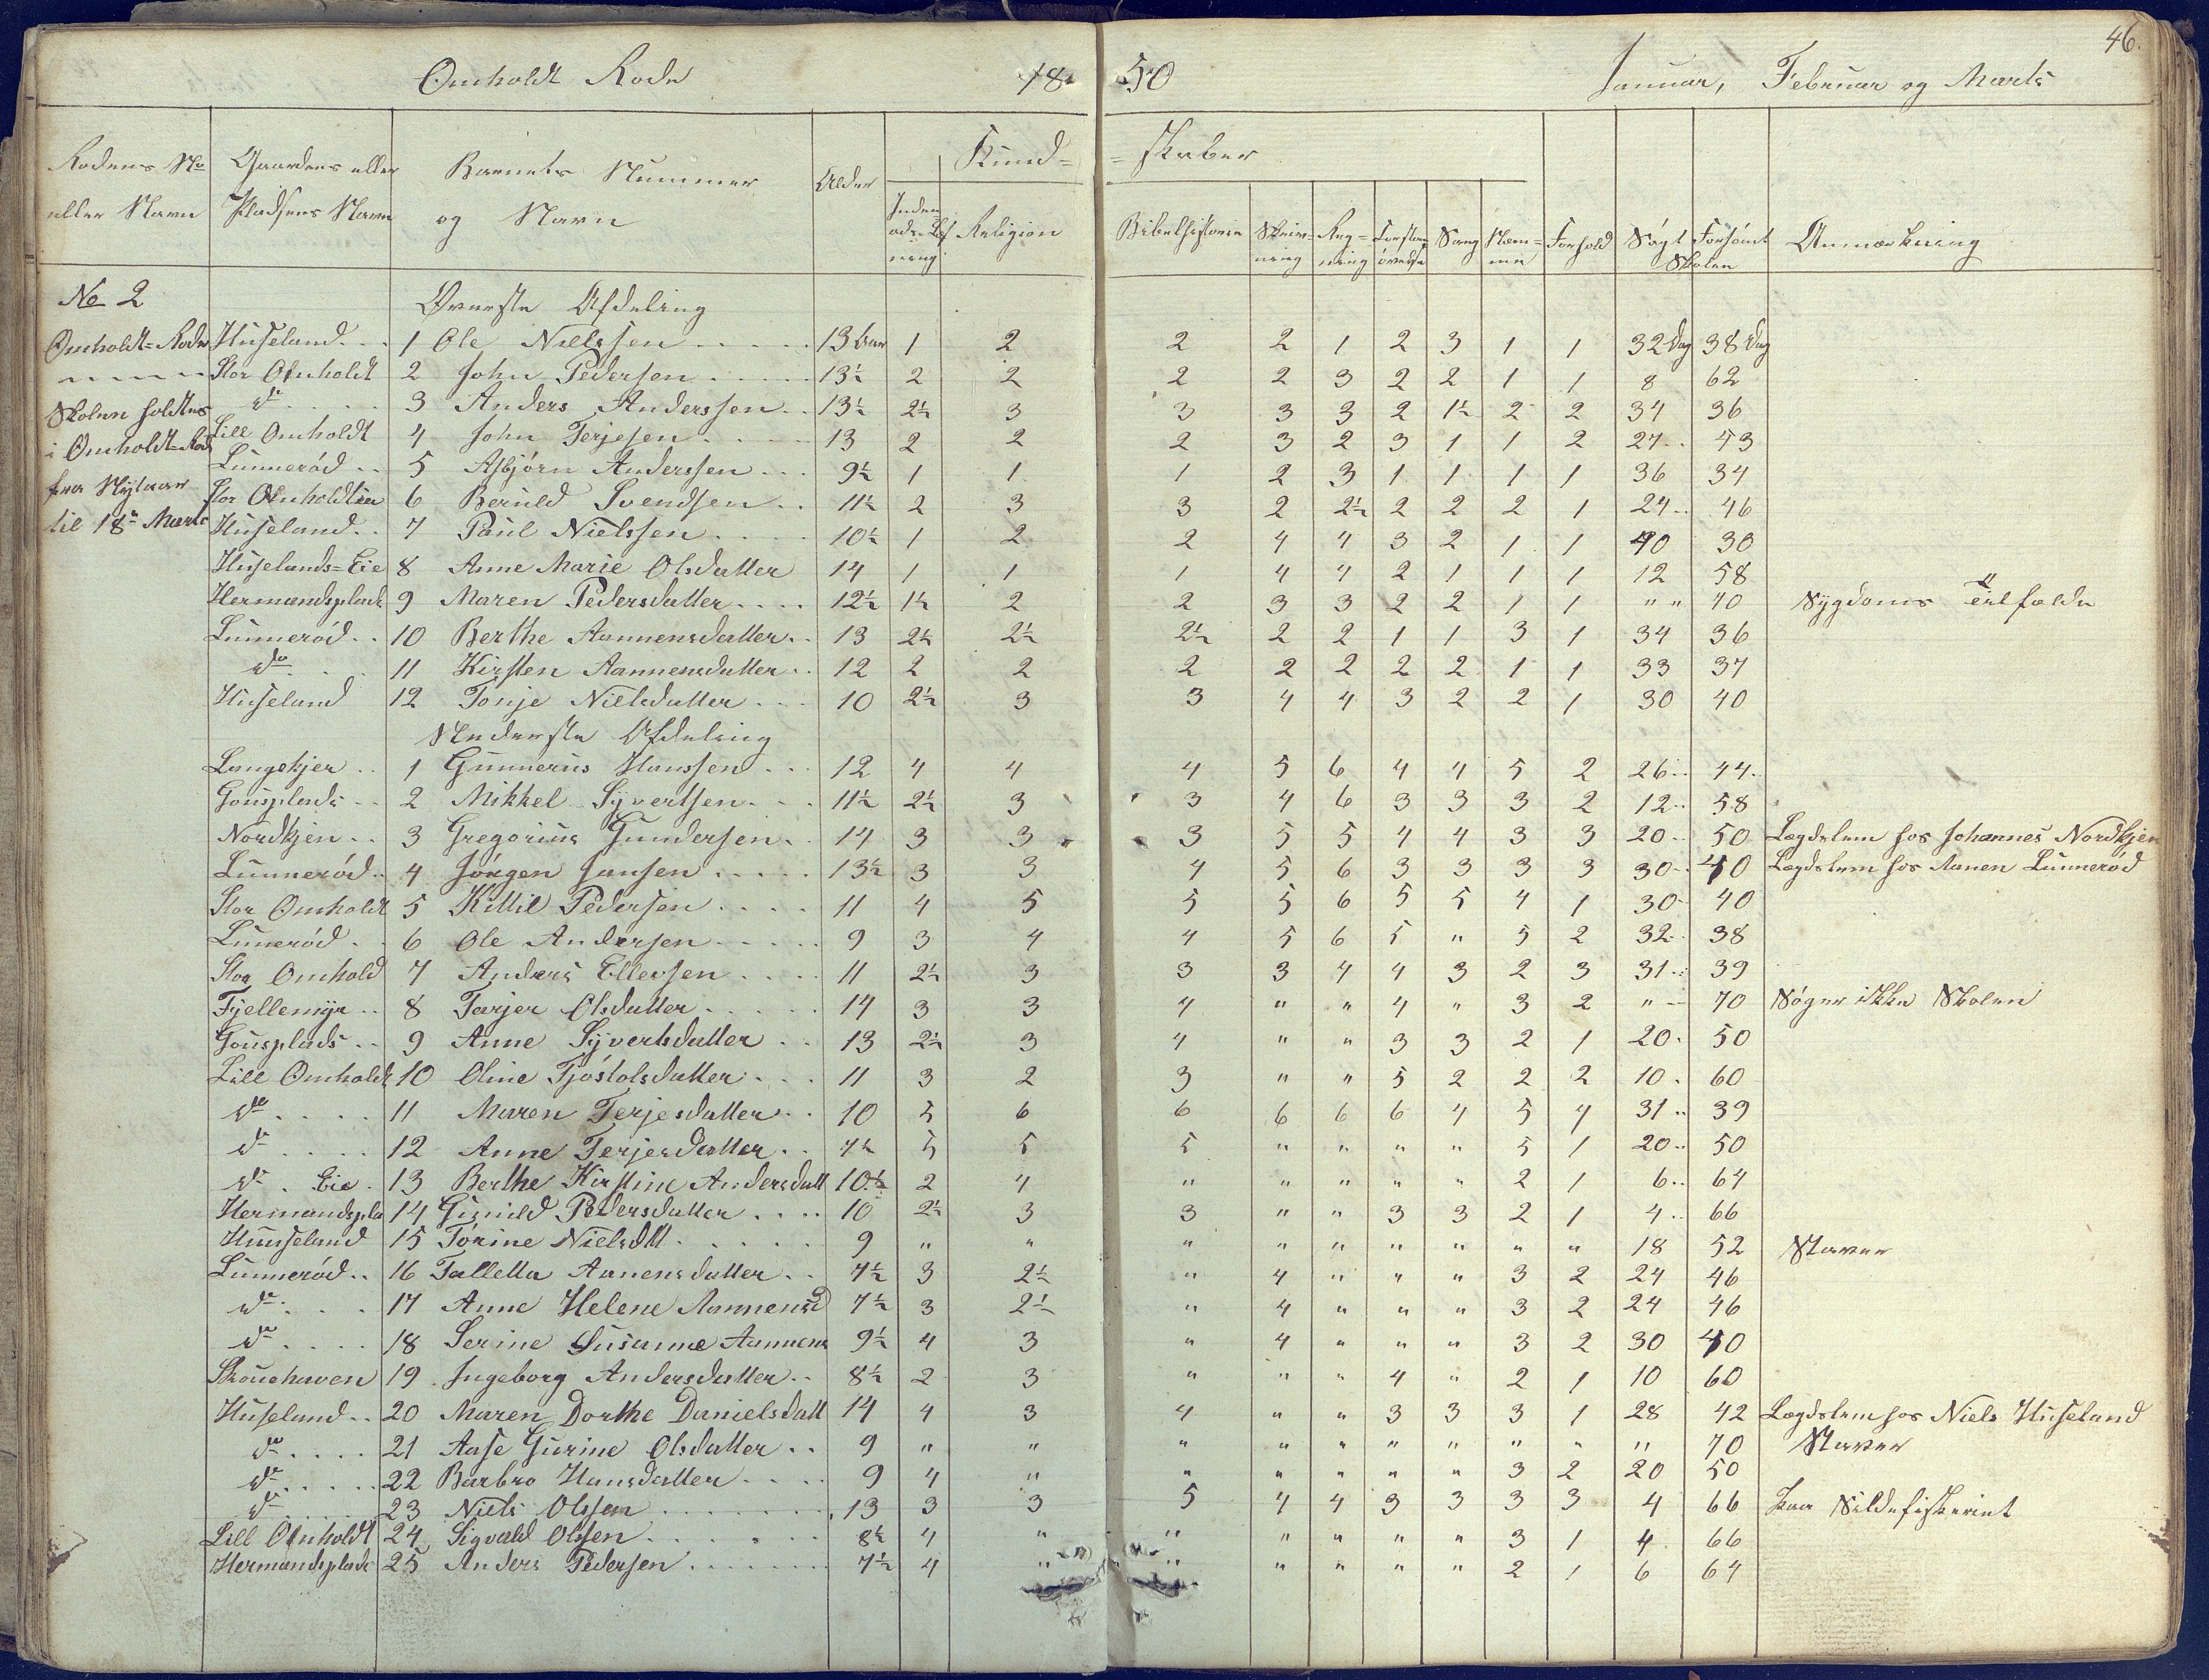 46.
Omholdt Rode 1850 Januar, Februar og Marts
Rodens No eller Navn | Gaardens eller Pladsens Navn | Barnets Nummer og Navn | Alder | Kund=skaber | Religion | Bibelhistorie | Skriv=ning | Reg=ning | Sang | Nem=me | Forhold | Søgt | Forsømt Skolen | Anmærkning
No 2 Øverste Afdeling
Omholdt=Rode Huseland 1 Ole Nielssen 13 aar 1 2 2 2 1 2 3 1 1 32 Dag 38 Dag
" " " " Stor Omholdt 2 John Pedersen 13½ 2 2 2 2 3 2 2 1 1 8 62
Skolen holdtes do 3 Anders Anderssen 13½ 2½ 3 3 3 3 2 1½ 2 2 34 36
i Omholdt=Rode Lill Omholdt 4 John Terjesen 13 2 2 2 3 2 3 1 1 2 27 43
Lunnerød 5 Asbjørn Anderssen 9½ 1 1 1 2 3 1 1 1 1 36 34
fra Nytaar Stor Omholdtlia 6 Beruld Svendsen 11½ 2 3 3 2 2½ 2 2 2 1 24 46
til 18de Marts Huseland 7 Paul Nielssen 10½ 1 2 2 4 4 3 2 1 1 40 30
Huselands=Eie 8 Anne Marie Olsdatter 14 1 1 1 4 4 2 1 1 1 12 58
Hermandsplads 9 Maren Pedersdatter 12½ 1½ 2 2 3 3 2 2 1 1 " " 70 Sygdoms Tilfælde
Lunnerød 10 Berthe Aannensdatter 13 2½ 2½ 2½ 2 2 1 1 3 1 34 36
do 11 Kirsten Aannensdatter 12 2 2 2 2 2 2 2 1 1 33 37
Huseland 12 Tonje Nielsdatter 10 2½ 3 3 4 4 3 2 2 1 30 40
Nederste Afdeling
Langekjer 1 Gunnerus Hanssen 12 4 4 4 5 6 4 4 5 2 26 44
Gonsplads 2 Mikkel Syvertsen 11½ 2½ 3 3 4 6 3 3 3 2 12 58
Nordkjen 3 Gregorius Gundersen 14 3 3 3 5 5 4 4 3 3 20 50 Lægdslem hos Johannes Nordkjen
Lunnerød 4 Jörgen Jansen 13½ 3 3 4 5 6 3 3 3 3 30 40 Lægdslem hos Aanen Lunnerød
Stor Omholdt 5 Kittil Pedersen 11 4 5 5 5 6 5 5 4 1 30 40
Lunerød 6 Ole Andersen 9 3 4 4 5 6 5 " 5 2 32 38
Stor Omhold 7 Anders Ellevsen 11 2½ 3 3 3 4 4 3 2 3 31 39
Fjellemyr 8 Tarjer Olsdatter 14 3 3 4 " " 4 " 3 2 " 70 Søger ikke Skolen
Gonsplads 9 Anne Syvertsdatter 13 2½ 3 4 " " 3 3 2 1 20 50
Lill Omholdt 10 Oline Tjöstolsdatter 11 3 2 3 " " 5 2 2 2 10 60
do 11 Maren Terjesdatter 10 5 6 6 6 6 6 4 5 4 31 39
do 12 Anne Terjesdatter 7½ 5 5 5 " " " " 5 1 20 50
do Eie 13 Berthe Kirstine Andersdatt 10½ 2 4 " " " " " 2 1 6 64
Hermandspla 14 Gunild Pedersdatter 10 2½ 3 3 " " 3 3 2 1 4 66
Hunseland 15 Tørine Nielsdtt 9 " " " " " " " " " 18 52 Staver
Lunnerød 16 Talletta Aanensdatter 7½ 3 2½ " 4 " " " 3 2 24 46
do 17 Anne Helene Aannensd 7½ 3 2½ " 4 " " " 3 2 24 46
do 18 Serine Susanne Aannens 9½ 4 3 " 4 " " " 3 2 30 40
Skouehaven 19 Ingeborg Andersdatter 8½ 2 3 " " " 4 " 2 1 10 60
Huseland 20 Maren Dorthe Danielsdatt 14 4 3 4 " " 3 3 3 1 28 42 Lægdslem hos Niels Huseland
do 21 Aase Gurine Olsdatter 9 " " " " " " " " " " 70 Staver
do 22 Barbro Hansdatter 9 4 " " " " " " 3 2 20 50
do 23 Niels Olssen 13 3 3 5 4 4 3 3 3 3 4 66 paa Sildefiskeriet
Lill Omholdt 24 Sigvald Olssen 8½ 4 " " " " " " 3 1 4 66
Hermandsplads 25 Anders Pedersen 7½ 4 " " " " " " 2 1 6 64